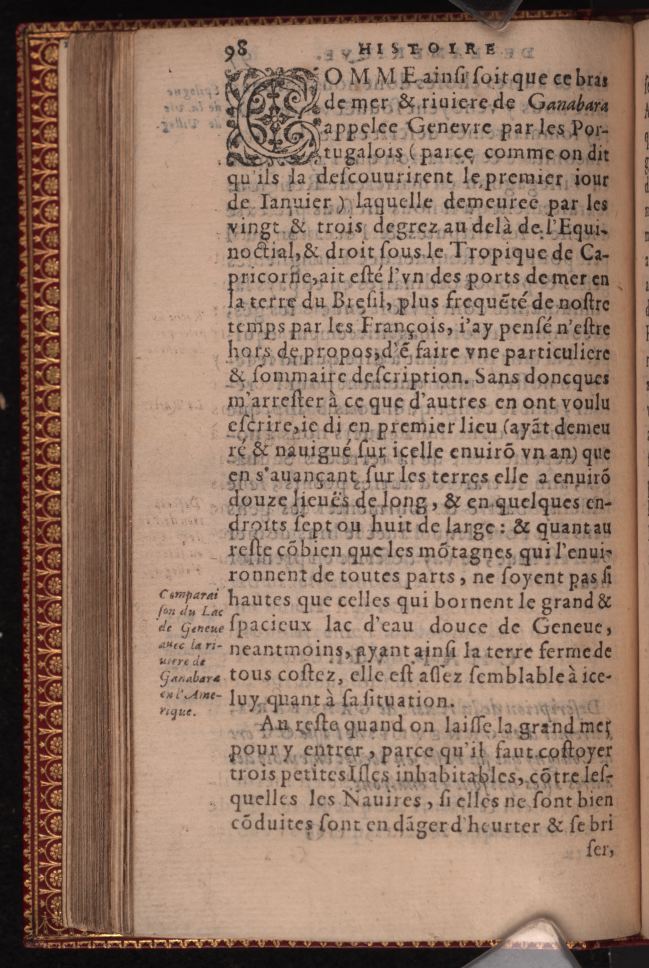 98 HISTOIRE
COMME ainsi soit que ce bras
de mer & riuiere de Ganabara
appelee Geneure par les Por-
tugalois (parce comme on dit
qu'ils la descouurirent le premier iour
de Ianuier) laquelle demeuree par les
vingt & trois degrez au delà de l'Equi-
noctial, & droit sous le Tropique de Ca-
pricorne, ait esté l'vn des ports de mer en
la terre du Bresil, plus frequẽté de nostre
temps par les François, i'ay pensé n'estre
hors de propos, d'ẽ faire vne particuliere
& sommaire description. Sans doncques
m'arrester à ce que d'autres en ont voulu
escrire, ie di en premier lieu (ayãt demeu
ré & nauigué sur icelle enuirõ vn an) que
en s'auançant sur les terres elle a enuirõ
douze lieuës de long, & en quelques en-
droits sept ou huit de large: & quant au
reste cõbien que les mõtagnes qui l'enui-
ronnent de toutes parts, ne soyent pas si
hautes que celles qui bornent le grand &
spacieux lac d'eau douce de Geneue,
neantmoins, ayant ainsi la terre ferme de
tous costez, elle est assez semblable à ice-
luy quant à sa situation.
Au reste quand on laisse la grand mer
pour y entrer, parce qu'il faut costoyer
trois petites Isles inhabitables, cõtre les-
quelles les Nauires, si elles ne sont bien
cõduites sont en dãger d'heurter & se bri
ser,
Comparai
son du Lac
de Geneue
auec la ri-
uiere de
Ganabara
en l'Ame-
rique.